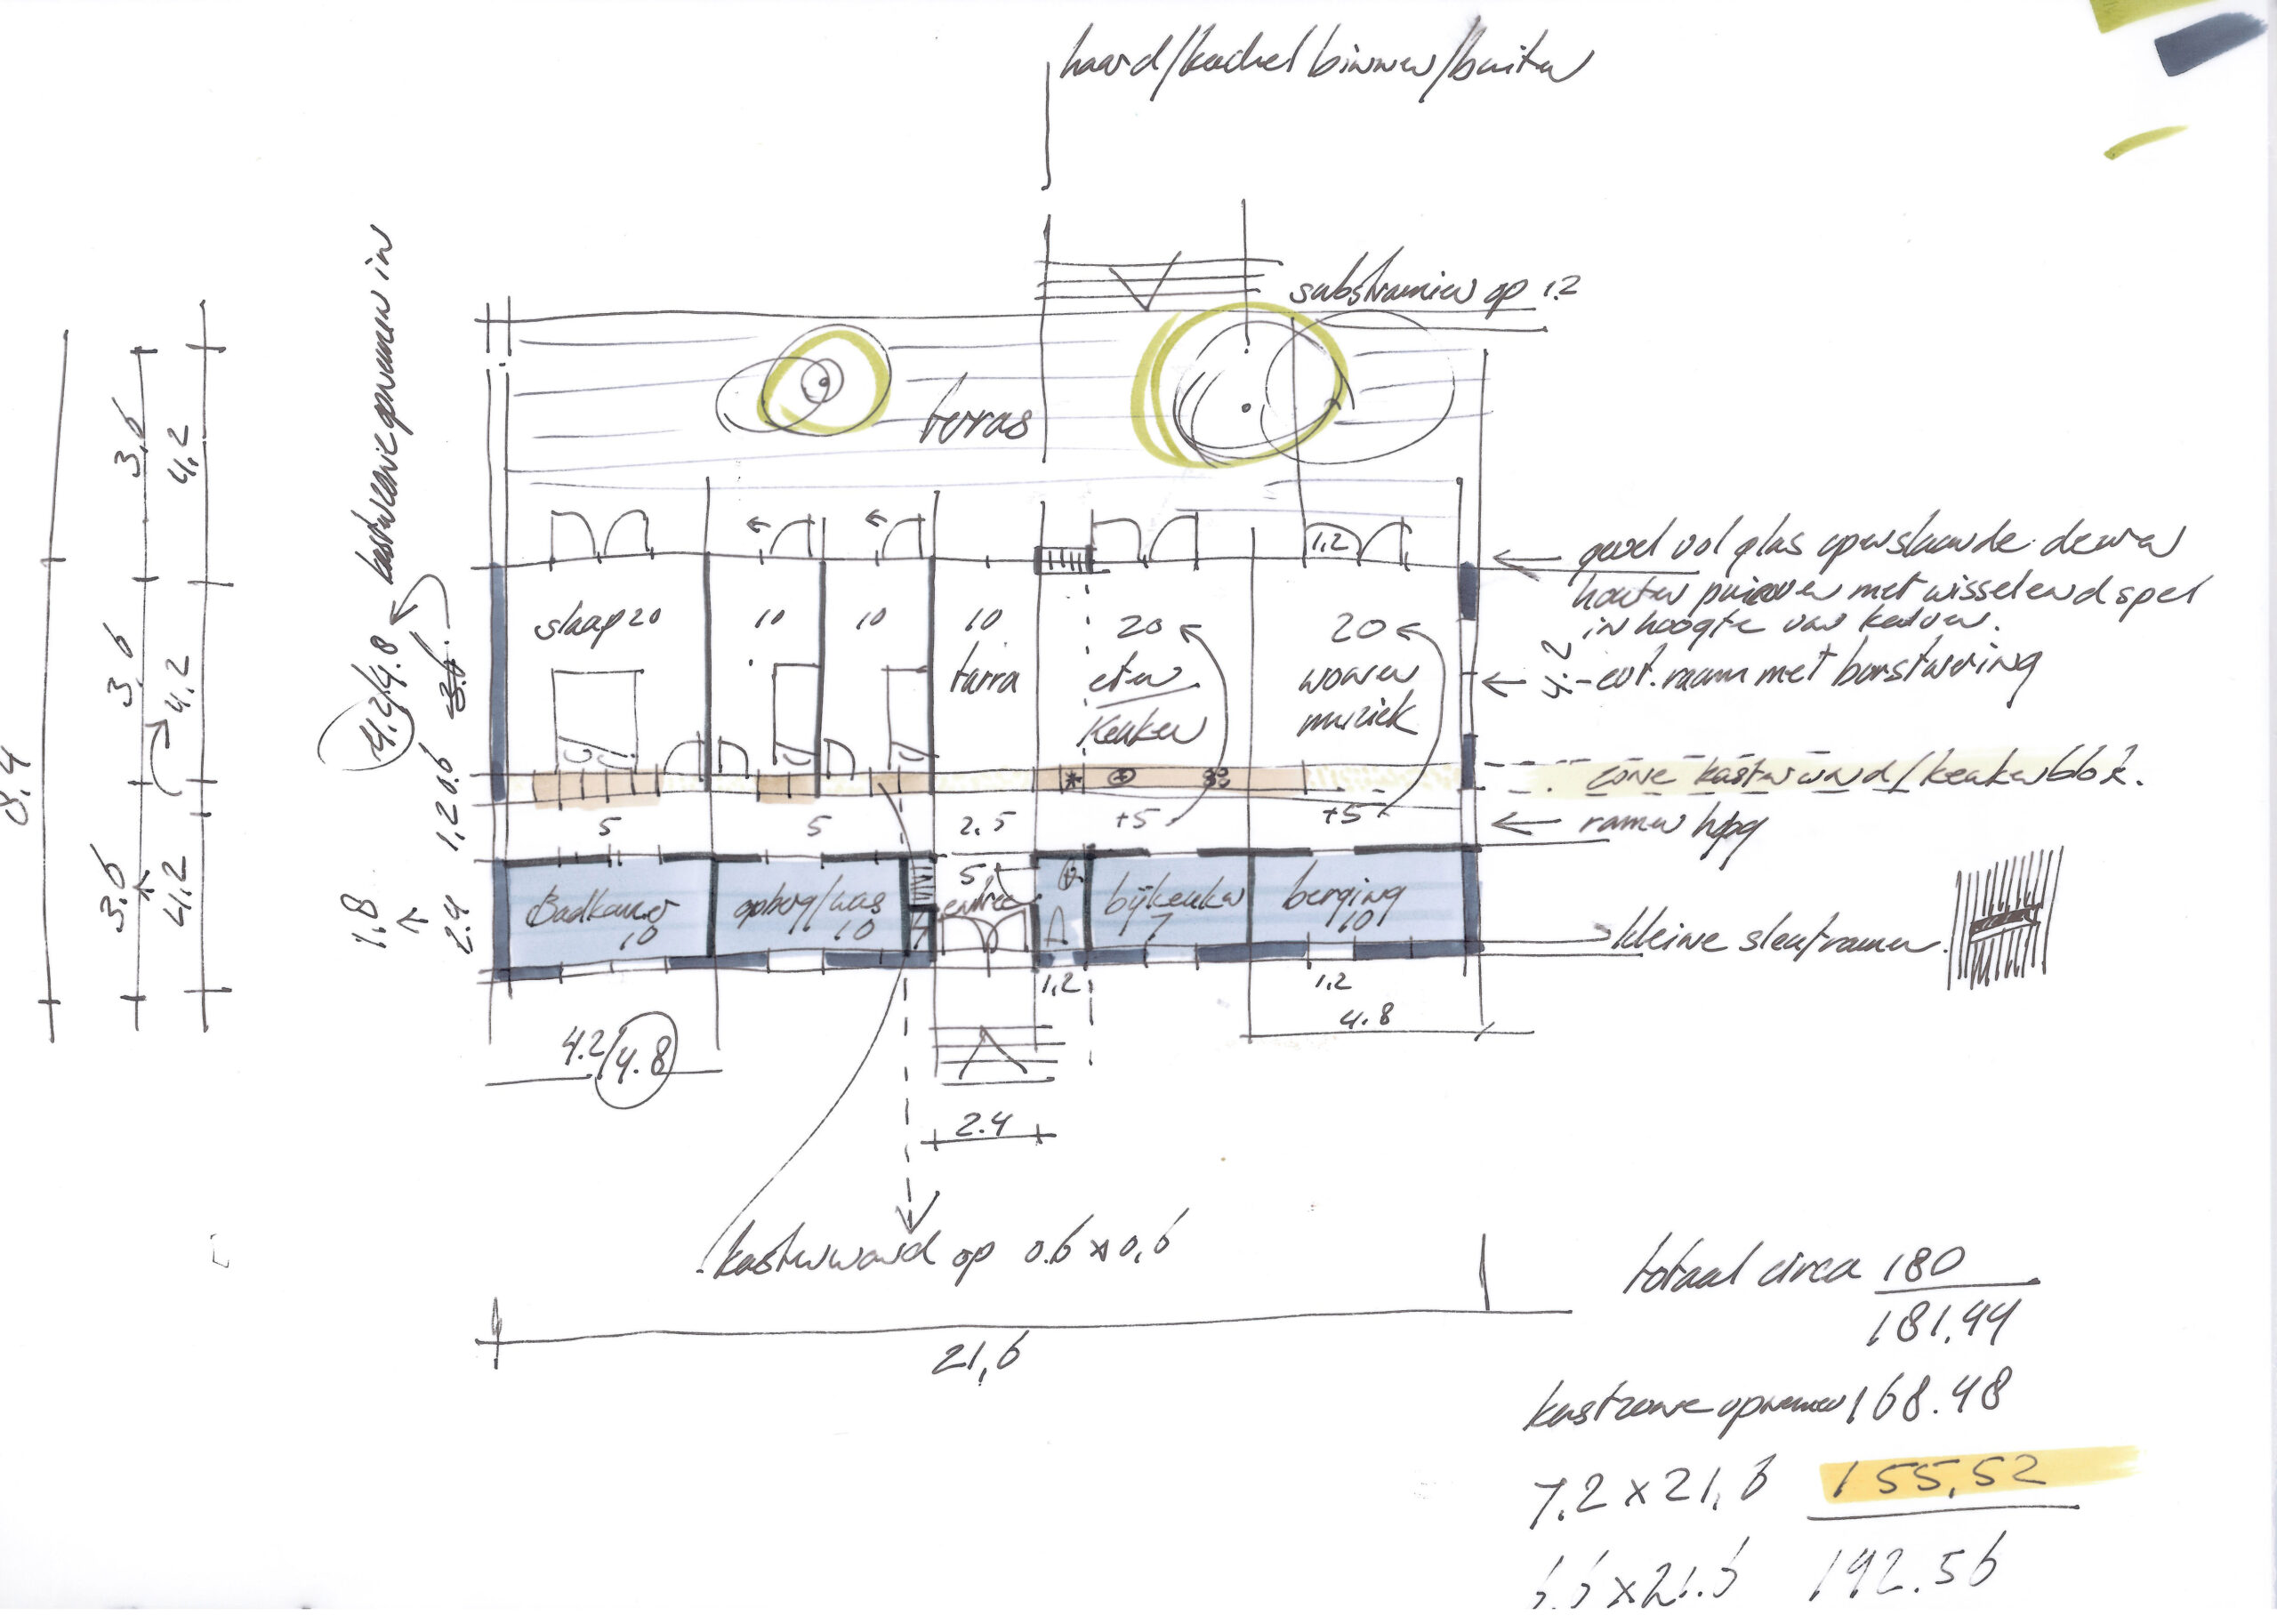 haard/kachel binnen/buiten
substramien op 1.2
kastzone opnemen in
terras
3.6
4.2
8.4
3.6
4.2
3.6
4.2
4.2/4.8
3.6
0.6
1.2
1.8
2.4
1,2
gevel vol glas openslaande deuren
houten puien met wisselend spel
in hoogte van kalven.
4.2
- evt. raam met borstwering
slaap 20
10
10
10
tarra
20
eten
keuken
20
wonen
muziek
zone kastenwand/keukenblok.
5
5
2.5
+5
+5
ramen hoog
Badkamer
10
opberg/was
10
5
entree
bijkeuken
7
berging
10
kleine sleuframen.
1,2
1,2
4.2/4.8
4.8
2.4
kastenwand op 0.6 x 0,6
21,6
totaal circa 180
181,44
kastzone opnemen 168.48
7.2 x 21,6 155,52
6.6 x 21.6 142.56